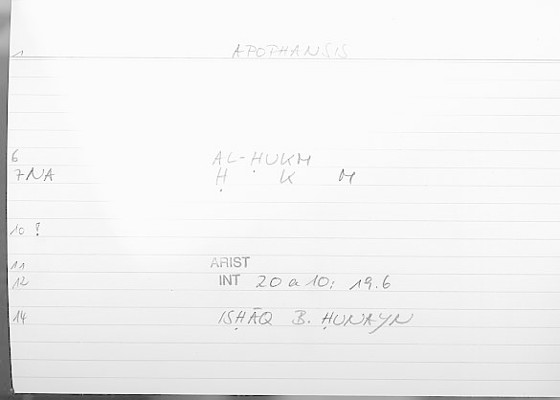 1 APOPHANSIS
6 AL-ḤUKM
7 NA Ḥ K M
10 !
11 ARIST
12 INT 20 a 10; 19.6
14 ISḤĀQ B. ḤUNAYN